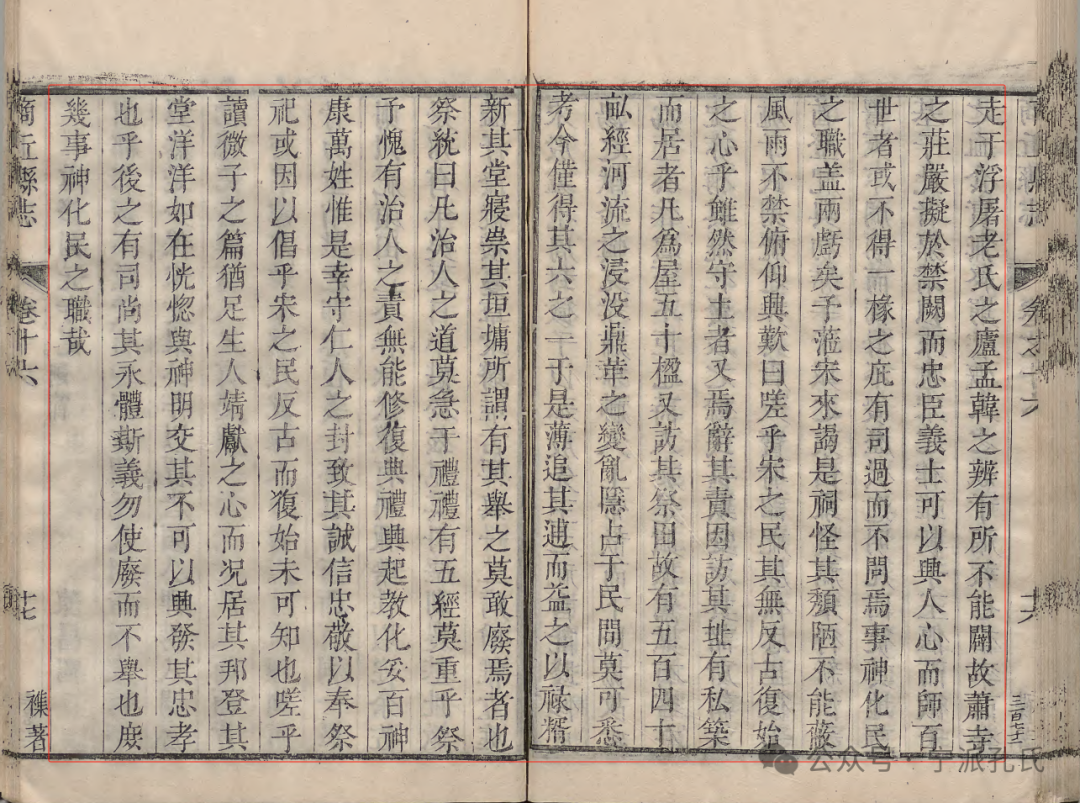 商丘縣志 卷之十六 十六 三百七十
走于浮屠老氏之廬孟韓之辨有所不能闢故蕭寺
之莊嚴擬於禁闕而忠臣義士可以興人心而師百
世者或不得一椽之庇有司過而不問焉事神化民
之職盖兩虧矣予蒞宋來謁是祠怪其頹陋不能蔽
風雨不禁俯仰興歎曰嗟乎宋之民其無反古復始
之心乎雖然守土者又焉辭其責因訪其址有私築
而居者凡為屋五十楹又訪其祭田故有五百四十
畆經河流之浸没鼎革之變亂隱占于民間莫可悉
考今僅得其六之一于是薄追其逋而益之以祿糈
新其堂寢崇其垣墉所謂有其舉之莫敢廢焉者也
祭統曰凡治人之道莫急于禮禮有五經莫重乎祭
予愧有治人之責無能修復典禮興起教化妥百神
康萬姓惟是幸守仁人之封致其誠信忠敬以奉祭
祀或因以倡乎宋之民反古而復始未可知也嗟乎
讀微子之篇猶足生人靖獻之心而况居其邦登其
堂洋洋如在恍惚與神明交其不可以興發其忠孝
也乎後之有司尚其永體斯義勿使廢而不舉也庻
幾事神化民之職哉
商丘縣志 卷十六 十七 襍著
公众号·宁派孔氏